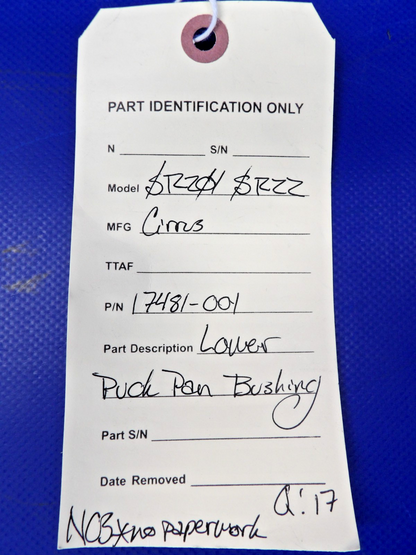 PART IDENTIFICATION ONLY
N S/N
Model SR22
MFG Cirrus
TTAF
P/N 17481-001
Part Description Lower
Puck Pan Bushing
Part S/N
Date Removed
Q:17
no paperwork